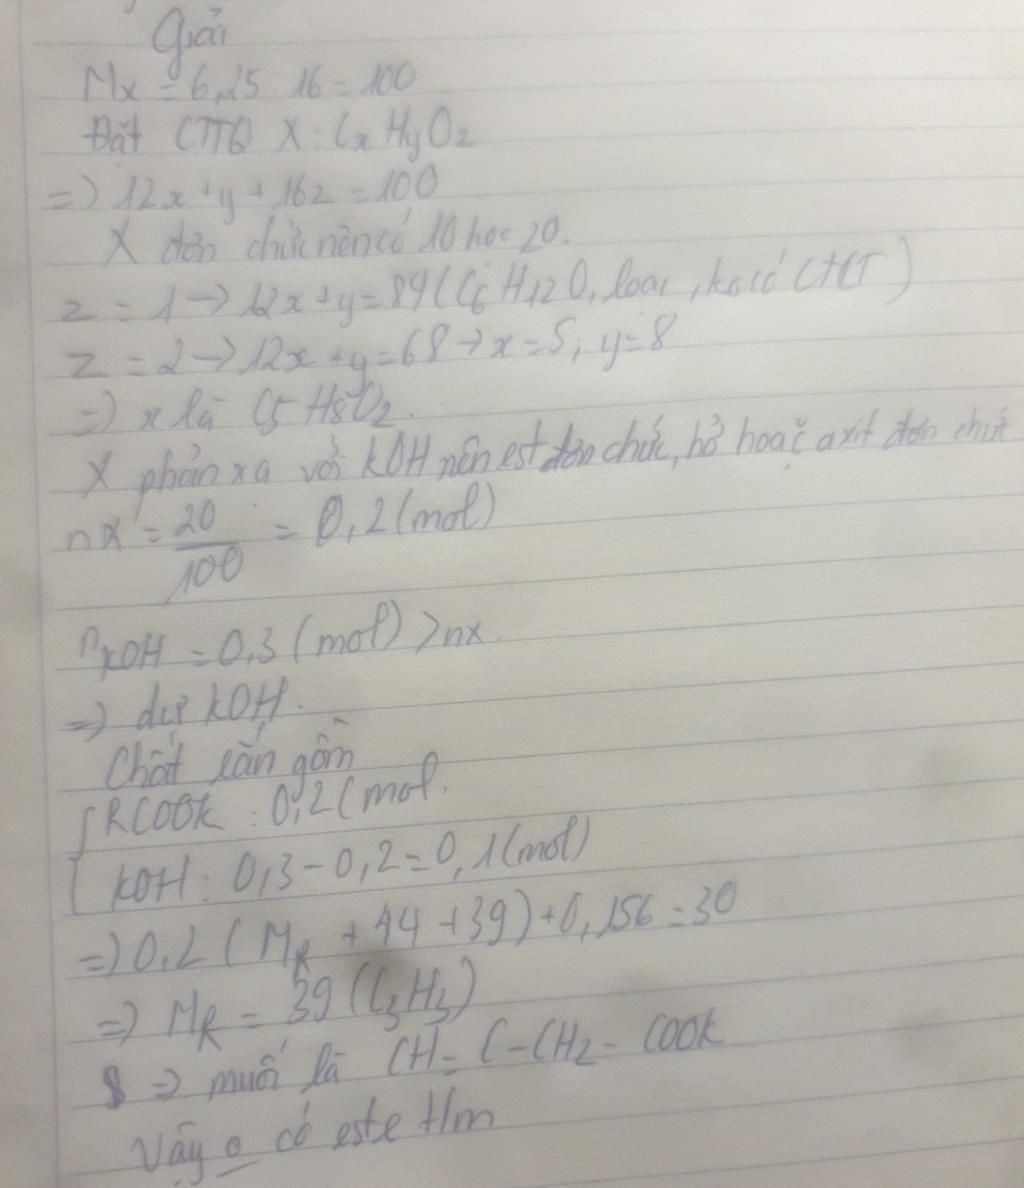 Giải
Mx = 6,25. 16 = 100
Đặt CTTQ X: CxHyO2
=) 12x + y + 16z = 100
X đơn chức nên có 1O hoc 2O.
z = 1 -> 12x + y = 84 (C6H12O, loại, ko có CTCT)
z = 2 -> 12x + y = 68 -> x = 5; y = 8
=) x là C5H8O2.
X phản xạ với KOH nên est đơn chức, hở hoặc axit đơn chức
nX = 20/100 = 0,2 (mol)
nKOH = 0,3 (mol) > nx.
=) dư KOH.
Chất rắn gồm
{ RCOOK : 0,2 (mol.
KOH : 0,3 - 0,2 = 0,1 (mol)
=) 0,2 ( MR + 44 + 39) + 0,1 56 = 30
=) MR = 39 (C3H3)
=) muối là CH = C - CH2 - COOK
Vậy o có este t/m